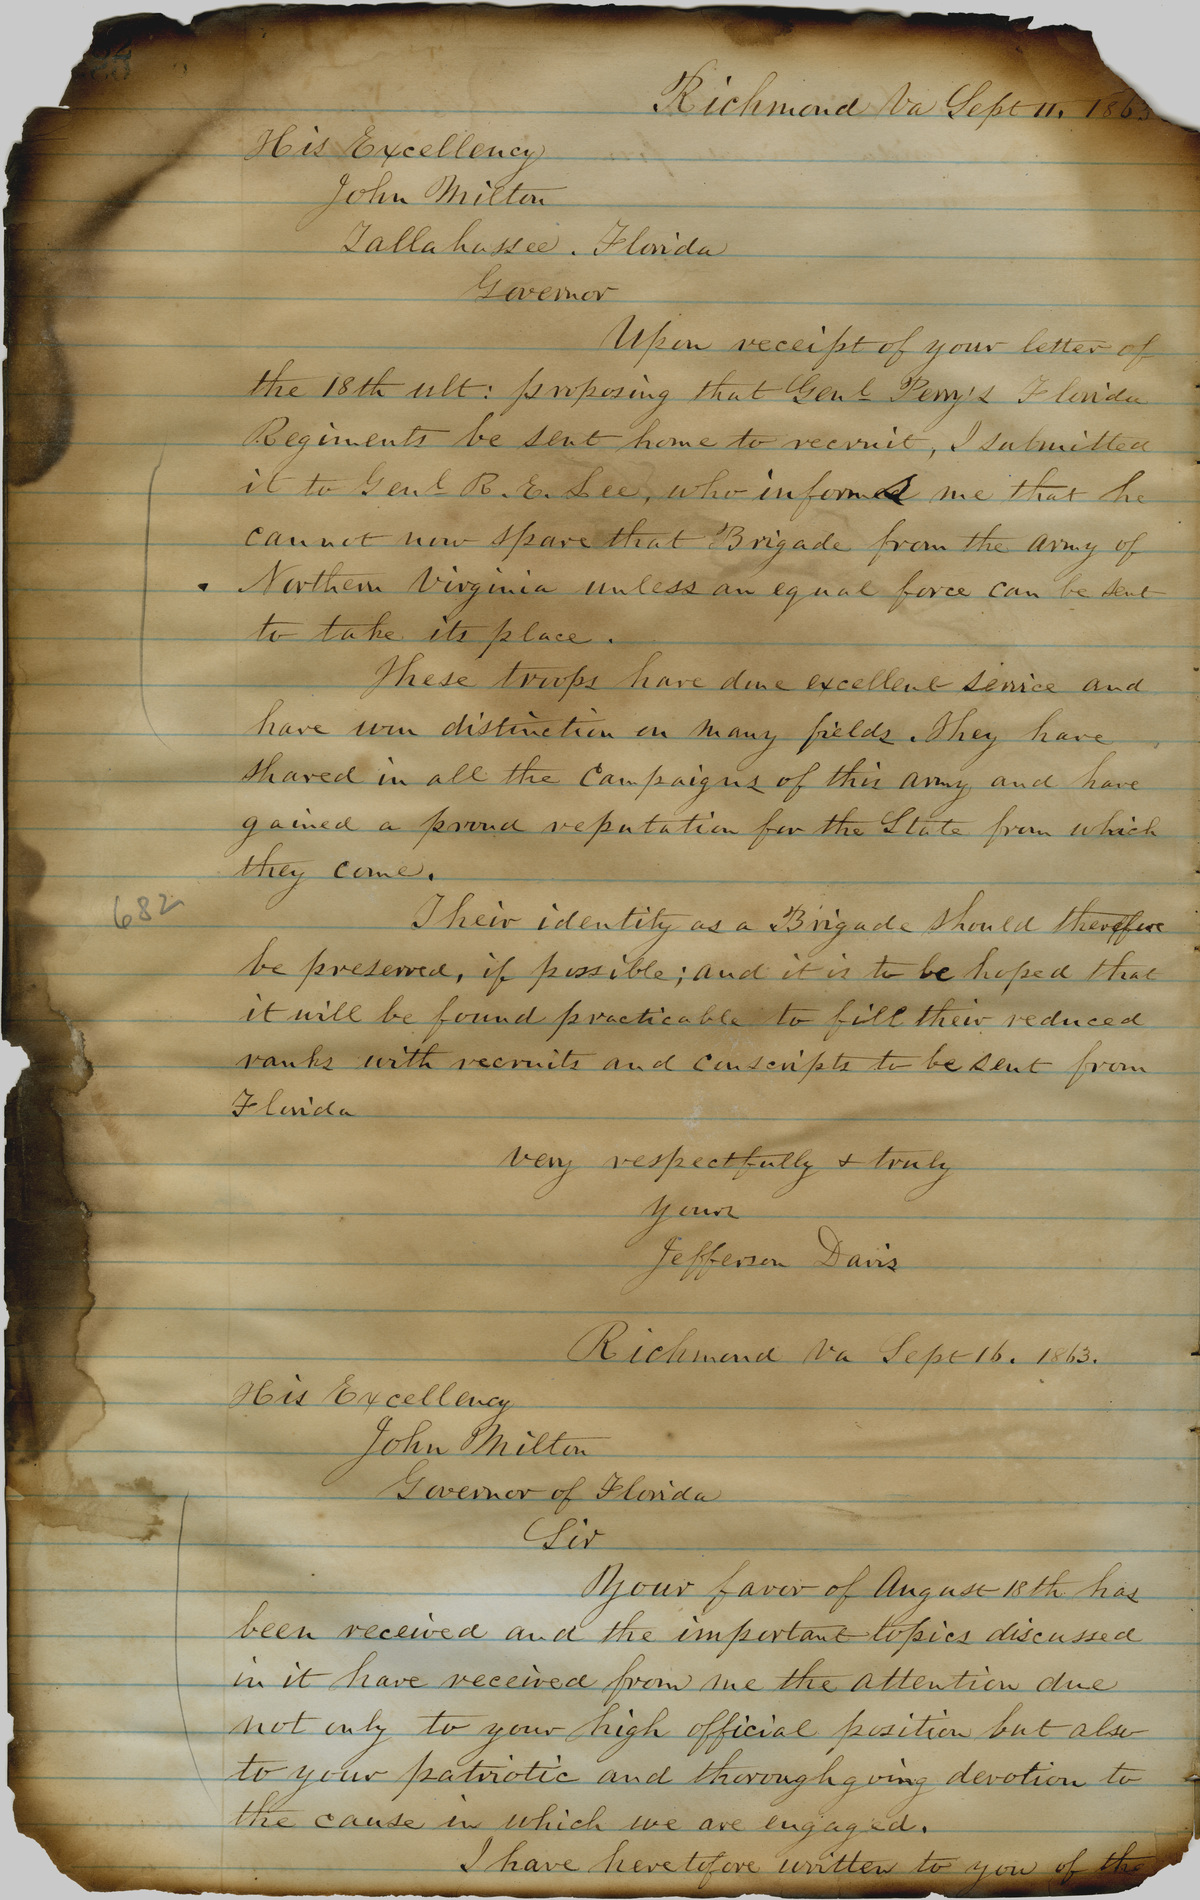 Richmond Va Sept 11. 1863
His Excellency
John Milton
Tallahassee. Florida
Governor
Upon receipt of your letter of
the 18th ult: proposing that Genl Perry's Florida
Regiments be sent home to recruit, I submitted
it to Genl R. E. Lee, who informed me that he
cannot now spare that Brigade from the army of
Northern Virginia unless an equal force can be sent
to take its place.
These troops have done excellent service and
have won distinction on many fields. They have
shared in all the Campaigns of this army and have
gained a proud reputation for the State from which
they come.
682
Their identity as a Brigade should therefore
be preserved, if possible; and it is to be hoped that
it will be found practicable to fill their reduced
ranks with recruits and conscripts to be sent from
Florida
Very respectfully & truly
yours
Jefferson Davis
Richmond Va Sept 16. 1863.
His Excellency
John Milton
Governor of Florida
Sir
Your favor of August 18th has
been received and the important topics discussed
in it have received from me the attention due
not only to your high official position but also
to your patriotic and thoroughgoing devotion to
the cause in which we are engaged.
I have heretofore written to you of the